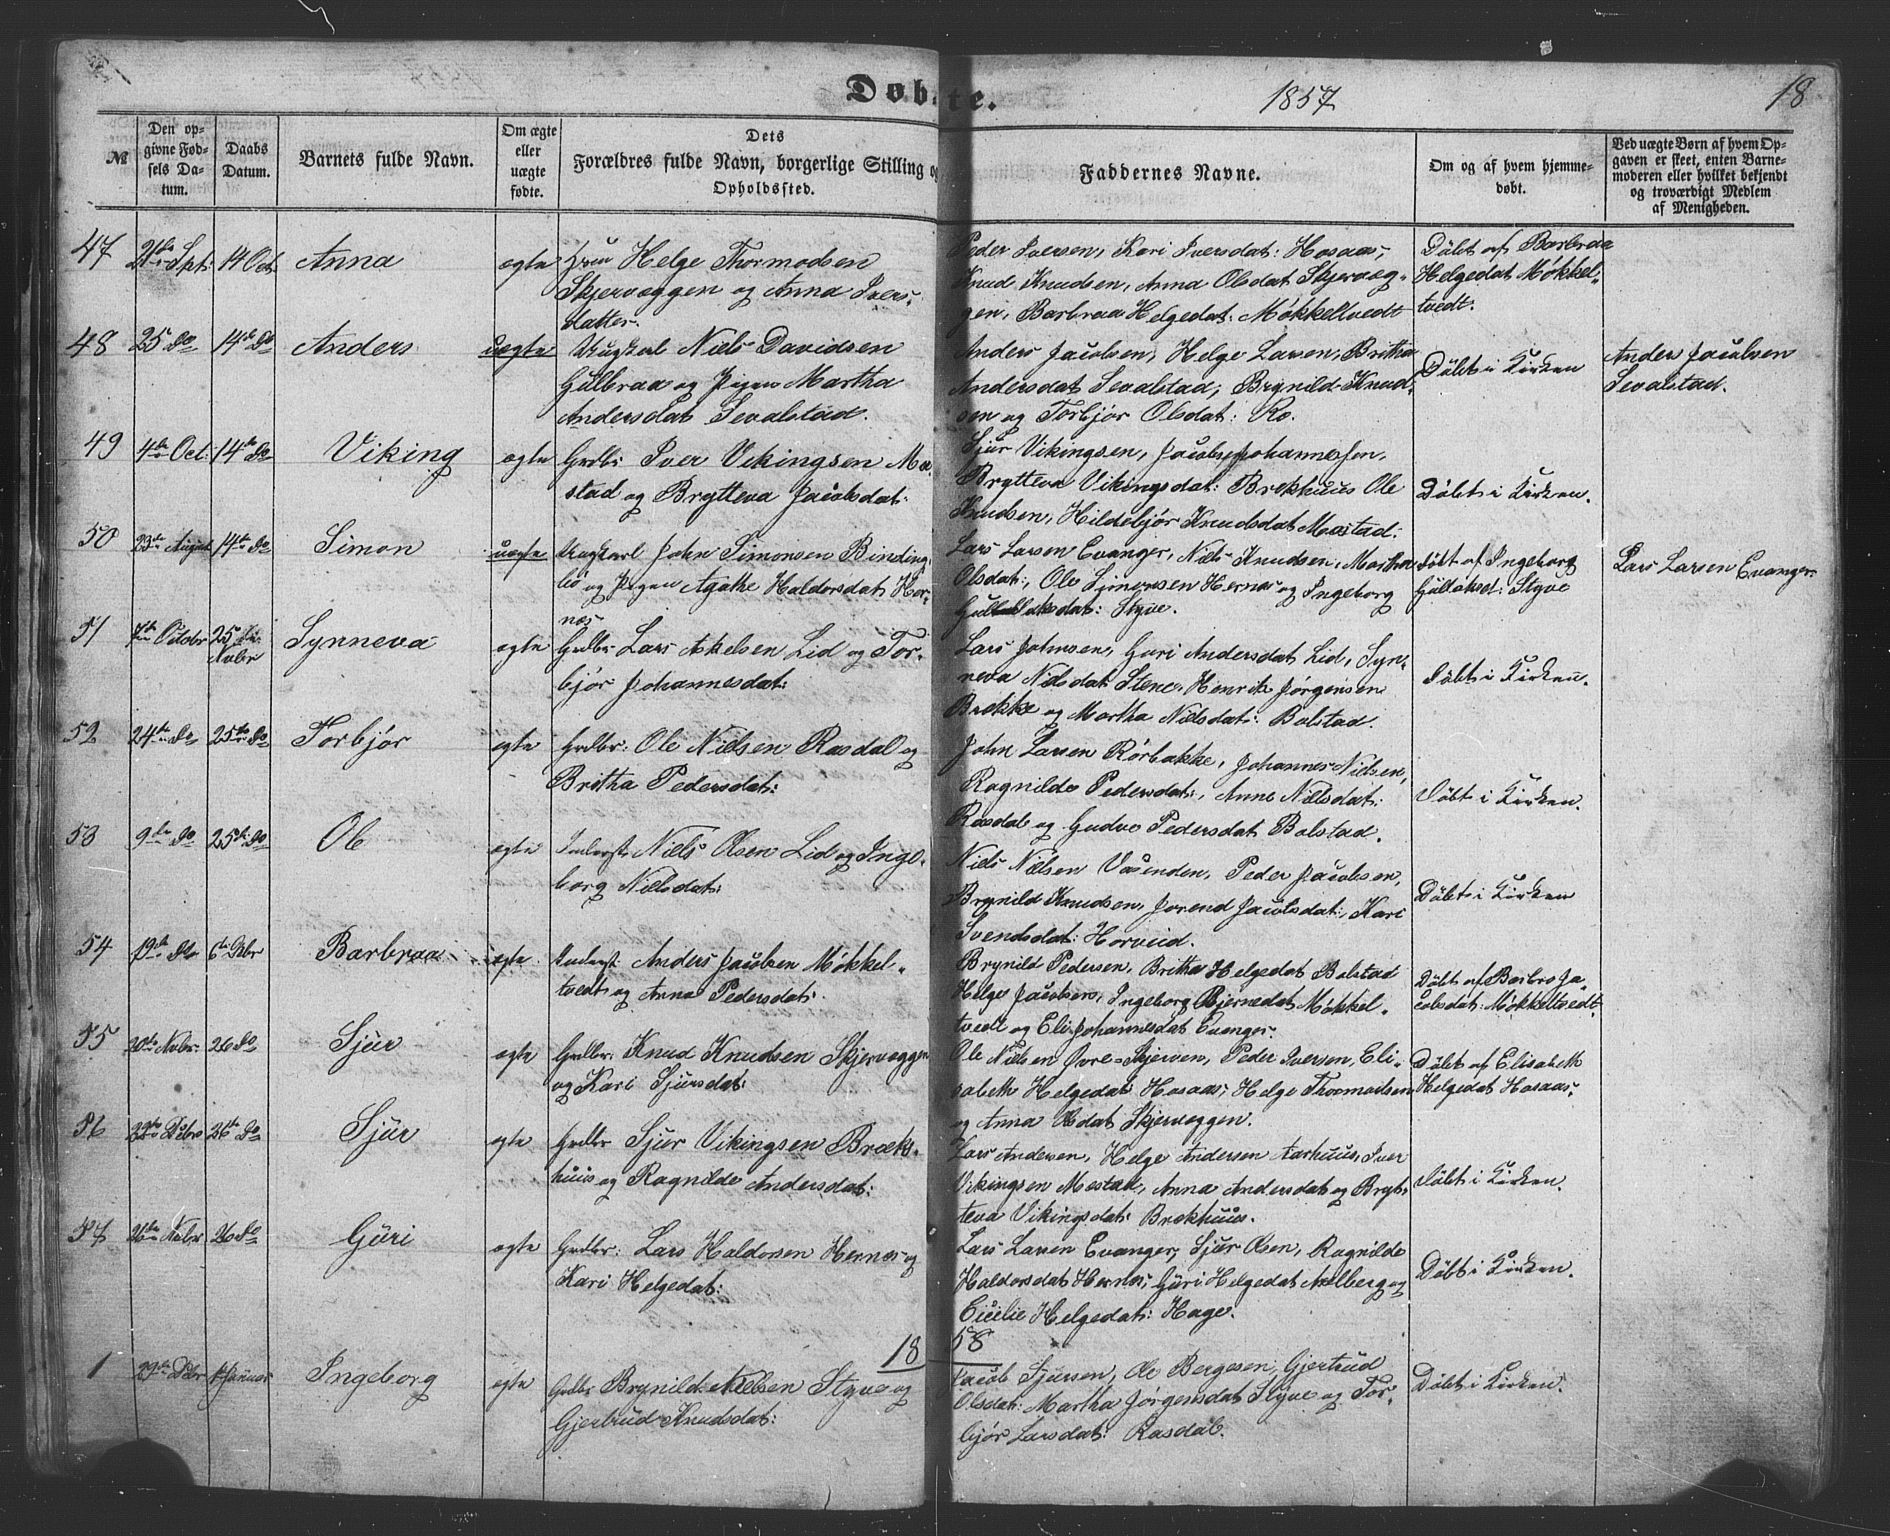 Døbte.
1857
18
№
Den opgivne Fødsels Datum.
Daabs Datum.
Barnets fulde Navn.
Om ægte eller uægte fødte.
Dets Forældres fulde Navn, borgerlige Stilling og Opholdssted.
Faddernes Navne.
Om og af hvem hjemmedøbt.
Ved uægte Børn af hvem Opgaven er skeet, enten Barnemoderen eller hvilket bekjendt og troværdigt Medlem af Menigheden.
47 21de Spt: 14 Oct Anna ægte
Helge Thormodsen
Skjervæggen og Anna Ivers-
datter.
Peder Iversen, Kari Iversdat: Hosaas,
Knud Knudsen, Anna Olsdat Skjervæg-
gen, Barbraa Helgedat: Møkkeltvedt
Döbt af Barbraa
Helgedat Møkkel-
tvedt.
48 25 do 14de do Anders uægte
Ungkarl Niels Davidsen
Gulbraa og Pigen Martha
Andersdat Sevalstad.
Anders Jacobsen, Helge Larsen, Britha
Andersdat Sevalstad, Brynild Knud-
sen og Torbjør Olsdat: Ro.
Döbt i Kirken
Anders Jacobsen
Sevalstad.
49 4de Oct: 14de do Viking ægte
Grdbr Iver Vikingsen Mæ-
stad og Brytteva Jacobsdat:
Sjur Vikingsen, Jacob Johannesen,
Brytteva Vikingsdat: Brekhuus Ole
Knudsen, Hildebjør Knudsdat Mæstad:
Döbt i Kirken.
50 23de August 14de do Simon uægte
Ungkarl John Simonsen Binding-
bø og Pigen Agathe Haldorsdat Her-
næs
Lars Larsen Evanger, Niels Knudsen, Martha
Olsdat:, Ole Simonsen Hernæs og Ingeborg
Gulleiksdat: Styve.
Döbt af Ingeborg
Gulleiksd: Styve
Lars Larsen Evanger.
51 7de Octobr 25de Novbr Synneva ægte
Grdbr Lars Askelsen Lid og Tor-
bjør Johannesdat:
Lars Johnsen, Guri Andersdat Lid, Syn-
neva Nilsdat: Stene, Henrik Jørgensen
Brekke og Martha Nielsdat: Bolstad
Döbt i Kirken.
52 24de do 25de do Torbjør ægte
Grdbr: Ole Nielsen Rasdal og
Britha Pedersdat:
John Larsen Rørbakke, Johannes Nielsen,
Ragnilde Pedersdat:, Anne Nielsdat:
Rasdal og Gudve Pedersdat Bolstad.
Döbt i Kirken.
53 9de do 25de do Ole ægte
Inderst Niels Olsen Lid og Inge-
borg Nielsdat:
Niels Nielsen Vasenden, Peder Jacobsen,
Brynild Knudsen, Jorend Jacobsdat:, Kari
Svendsdat: Horveid.
Döbt i Kirken
54 19de do 6te Dcbr Barbraa ægte
Inderst Anders Jacobsen Møkkel-
tvedt og Anna Pedersdat:
Brynild Pedersen, Britha Helgedat Bolstad
Helge Jacobsen, Ingeborg Bjernedat Møkkel-
tvedt og Eli Johannesdat Evanger.
Döbt af Barbro Ja-
cobsdat: Møkkeltvedt.
55 20de Novbr: 26 do Sjur ægte
Grdbr: Knud Knudsen Skjervæggen
og Kari Sjursdat:
Ole Nielsen Øvre-Skjerven, Peder Iversen, Eli-
sabeth Helgedat Hosaas, Helge Thormodsen
og Anna Olsdat Skjervæggen.
Döbt af Elisabeth
Helgedat Hosaas.
56 22de Dcbr 26de do Sjur ægte
Grdbr Sjur Vikingsen Bræk-
huus og Ragnilde Andersdat:
Lars Andersen, Helge Andersen Aarhuus, Iver
Vikingsen Mestad, Anna Andersdat og Bryt-
teva Vikingsdat: Brekhuus.
Döbt i Kirken.
57 26de Novbr 26 do Guri ægte
Grdbr: Lars Haldorsen Hernæs og
Kari Helgedat:
Lars Larsen Evanger, Sjur Olsen, Ragnilde
Haldorsdat Hernæs, Guri Helgedat
Cicilie Helgedat: Hage.
Döbt i Kirken.
1858
1 29de Dcbr 1 Januar Ingeborg ægte
Grdbr Brynild Nielsen Styve og
Gjertrud Knudsdat:
Jacob Sjursen, Ole Bergesen, Gjertrud
Olsdat: Martha Jörgensdat Styve og Tor-
bjør Larsdat: Rasdal.
Döbt i Kirken.